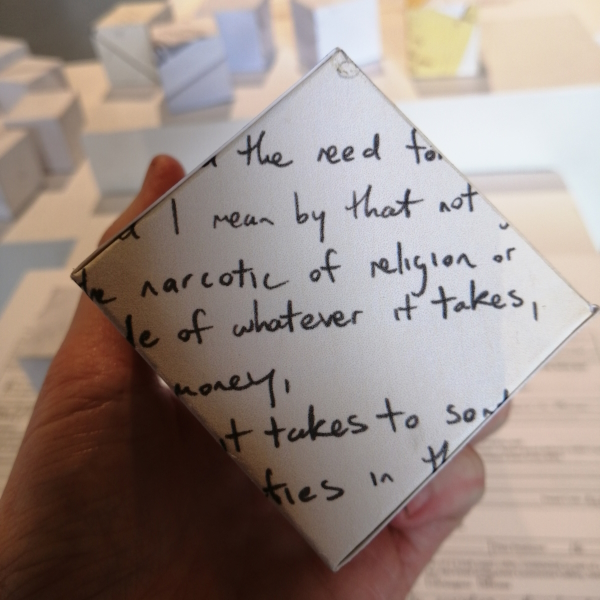 the need for
I mean by that not
narcotic of religion or
of whatever it takes,
money,
it takes to
ties in